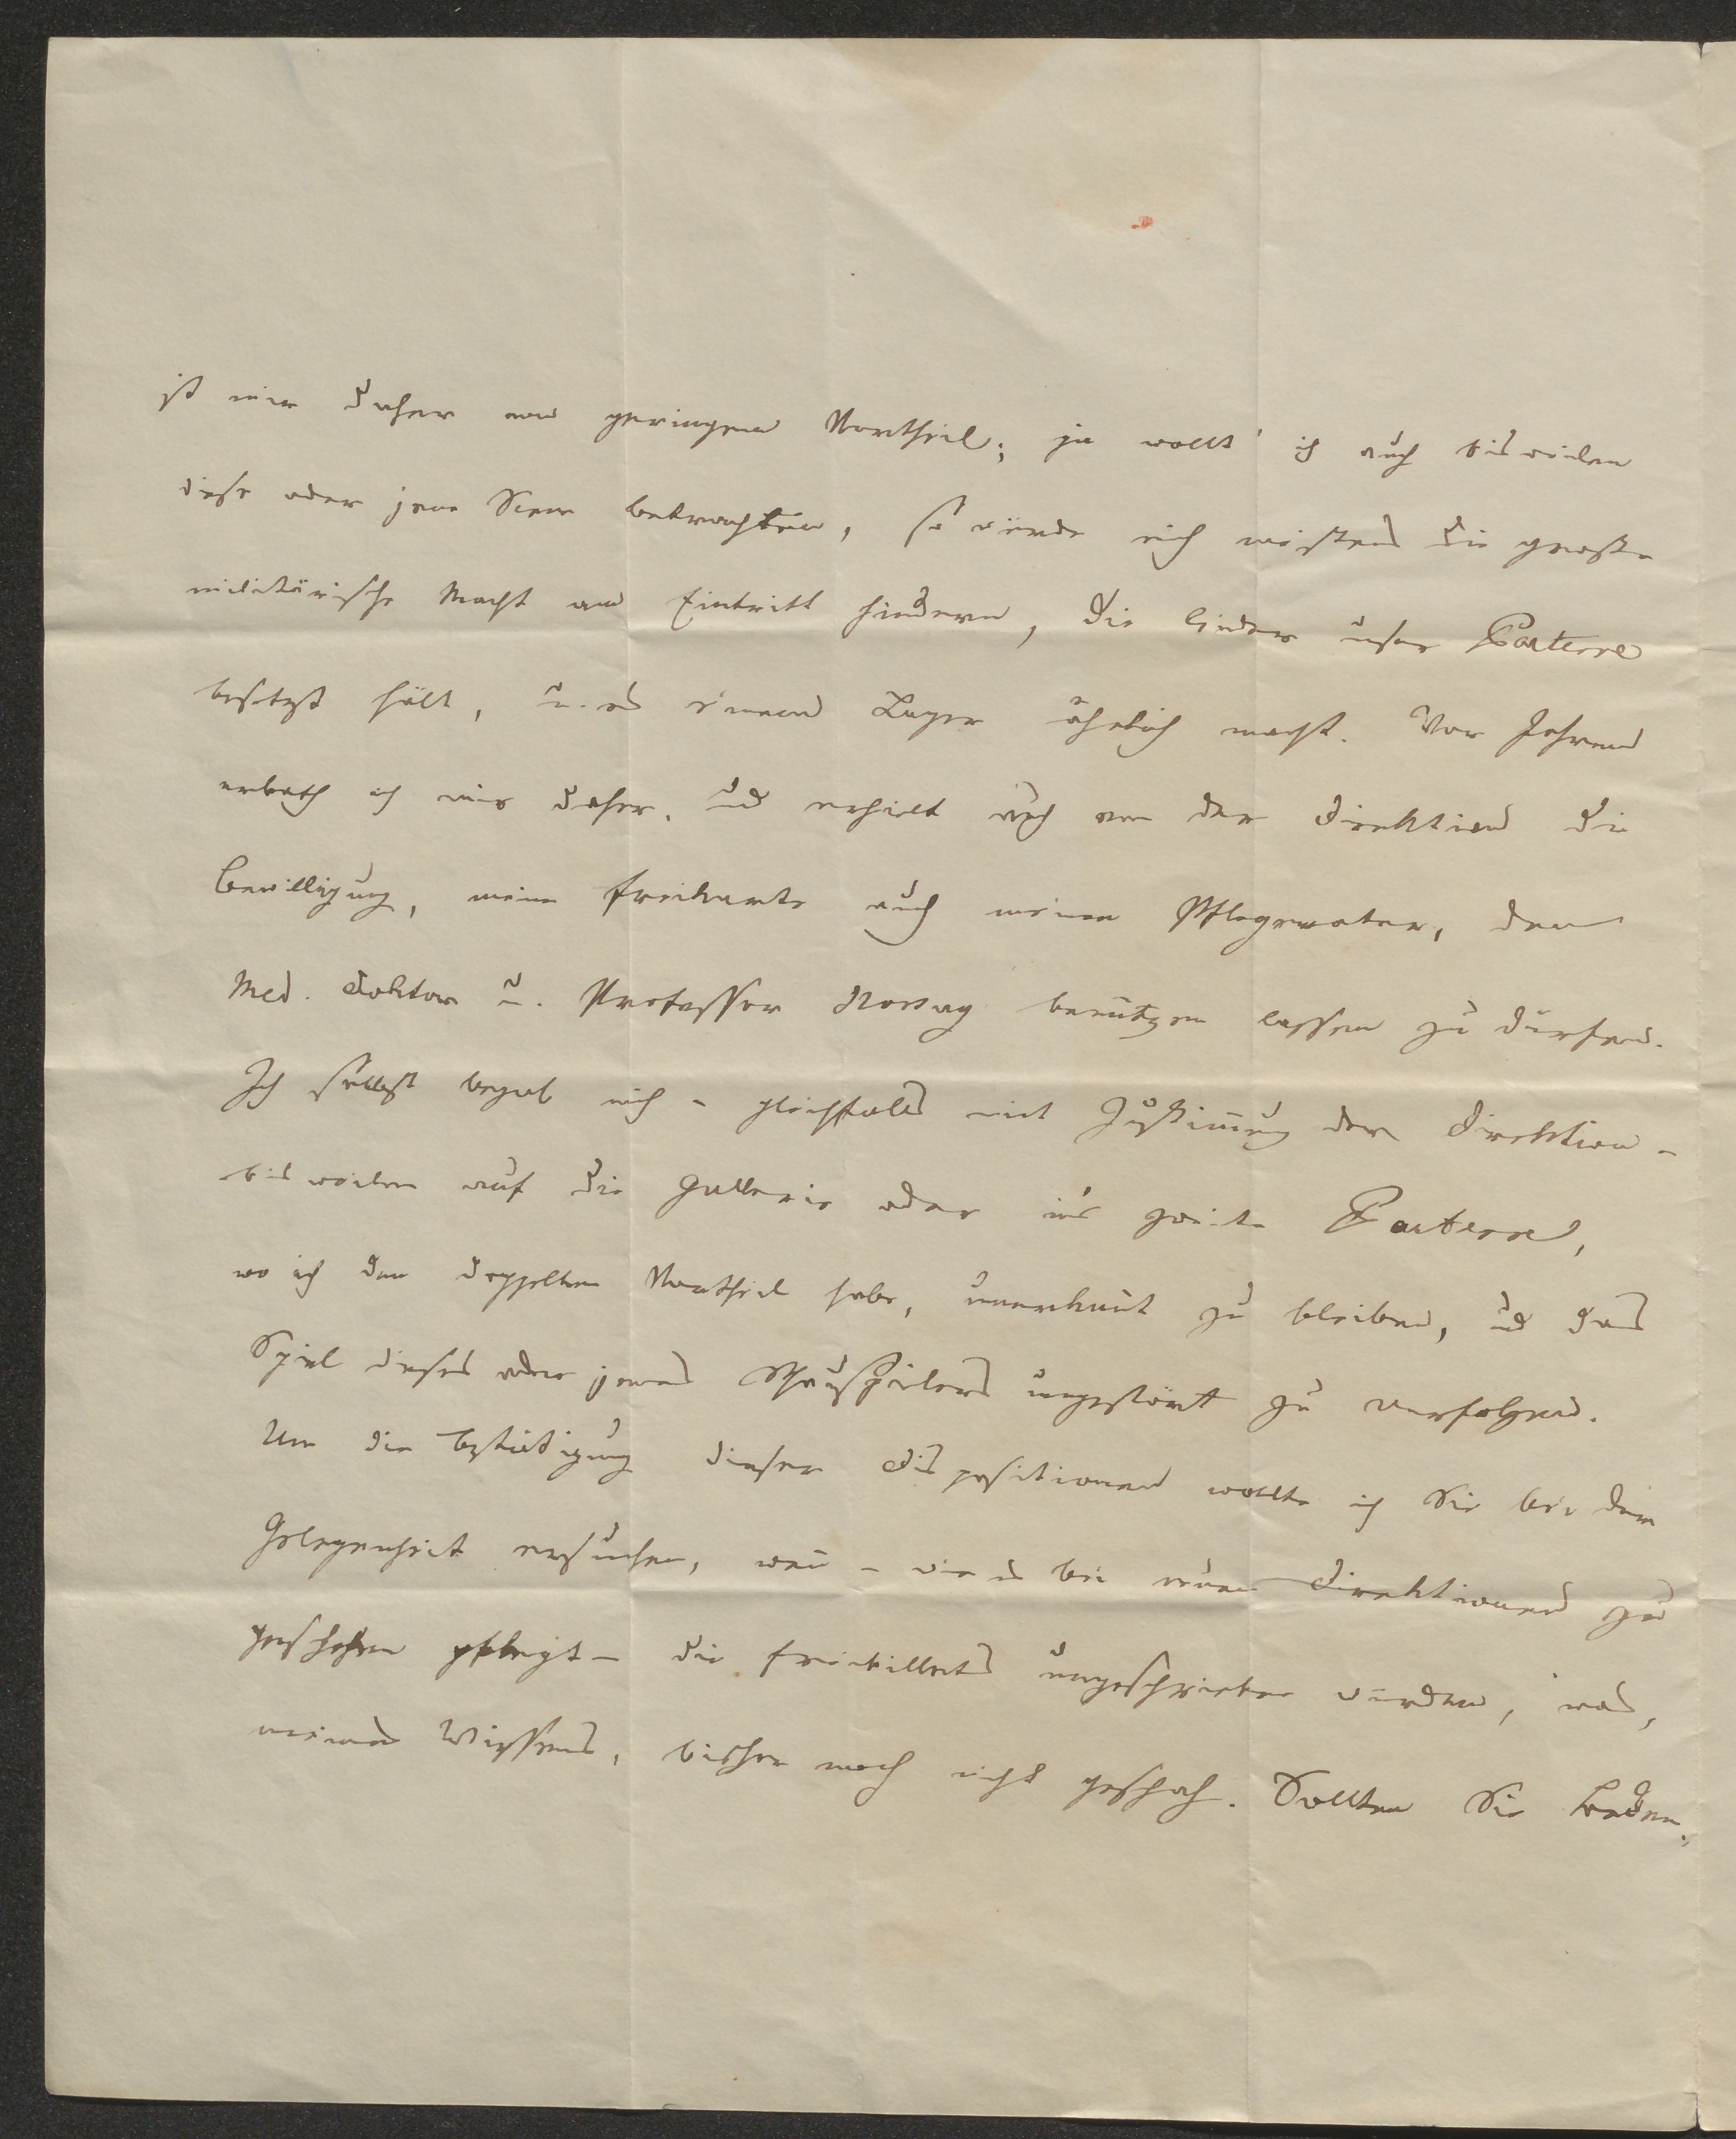 ist mir daher von geringem Vortheil; ja wollt' ich auch bisweilen
diese oder jene Scene betrachten, so würde mich meistens die große
militärische Macht am Eintritt hindern, die leider unser Parterre
besetzt hält, u. es einem Lager ähnlich macht. Vor Jahren
erbath ich mir daher, und erhielt auch von der Direktion die
Bewilligung, meine Freikarte auch meinen Pflegevater, den
Med. Doktor u. Professor benützen lassen zu dürfen.
Ich selbst begab mich – gleichfalls mit Zustim̅ung der Direktion –
bisweilen auf die Gallerie oder in's zweite Parterre,
wo ich den doppelten Vortheil habe, unerkan̅t zu bleiben, und das
Spiel dieses oder jenes Schauspielers ungestört zu verfolgen.
Um die Bestätigung dieser Dispositionen wollte ich Sie bei der
Gelegenheit ersuchen, wen̅ – wie es bei neuen Direktionen zu
geschehen pflegt – die Freibillets umgeschrieben würden, was,
meines Wissens, bisher noch nicht geschah. Sollten Sie